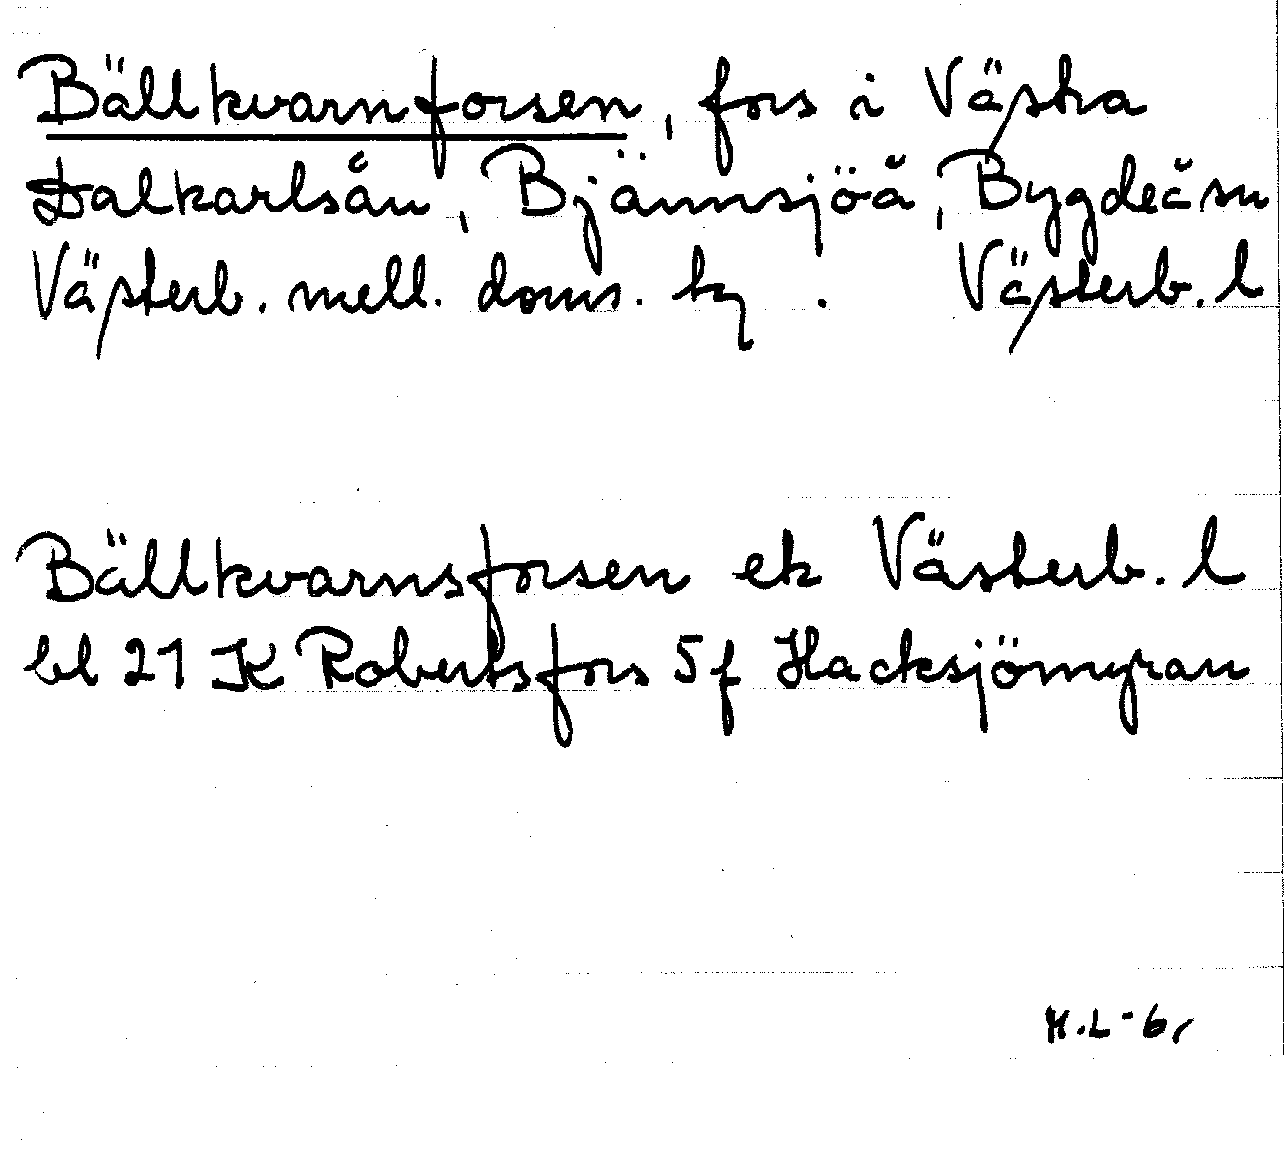 Bällkvarnforsen, fors i Västra
Dalkarlsån, Bjännsjöå, Bygdeå sn
Västerb. mell. doms. hg. Västerb. l
Bällkvarnsforsen ek Västerb. l
bl 21 K Robertsfors 5f Hacksjömyran
H.L-61